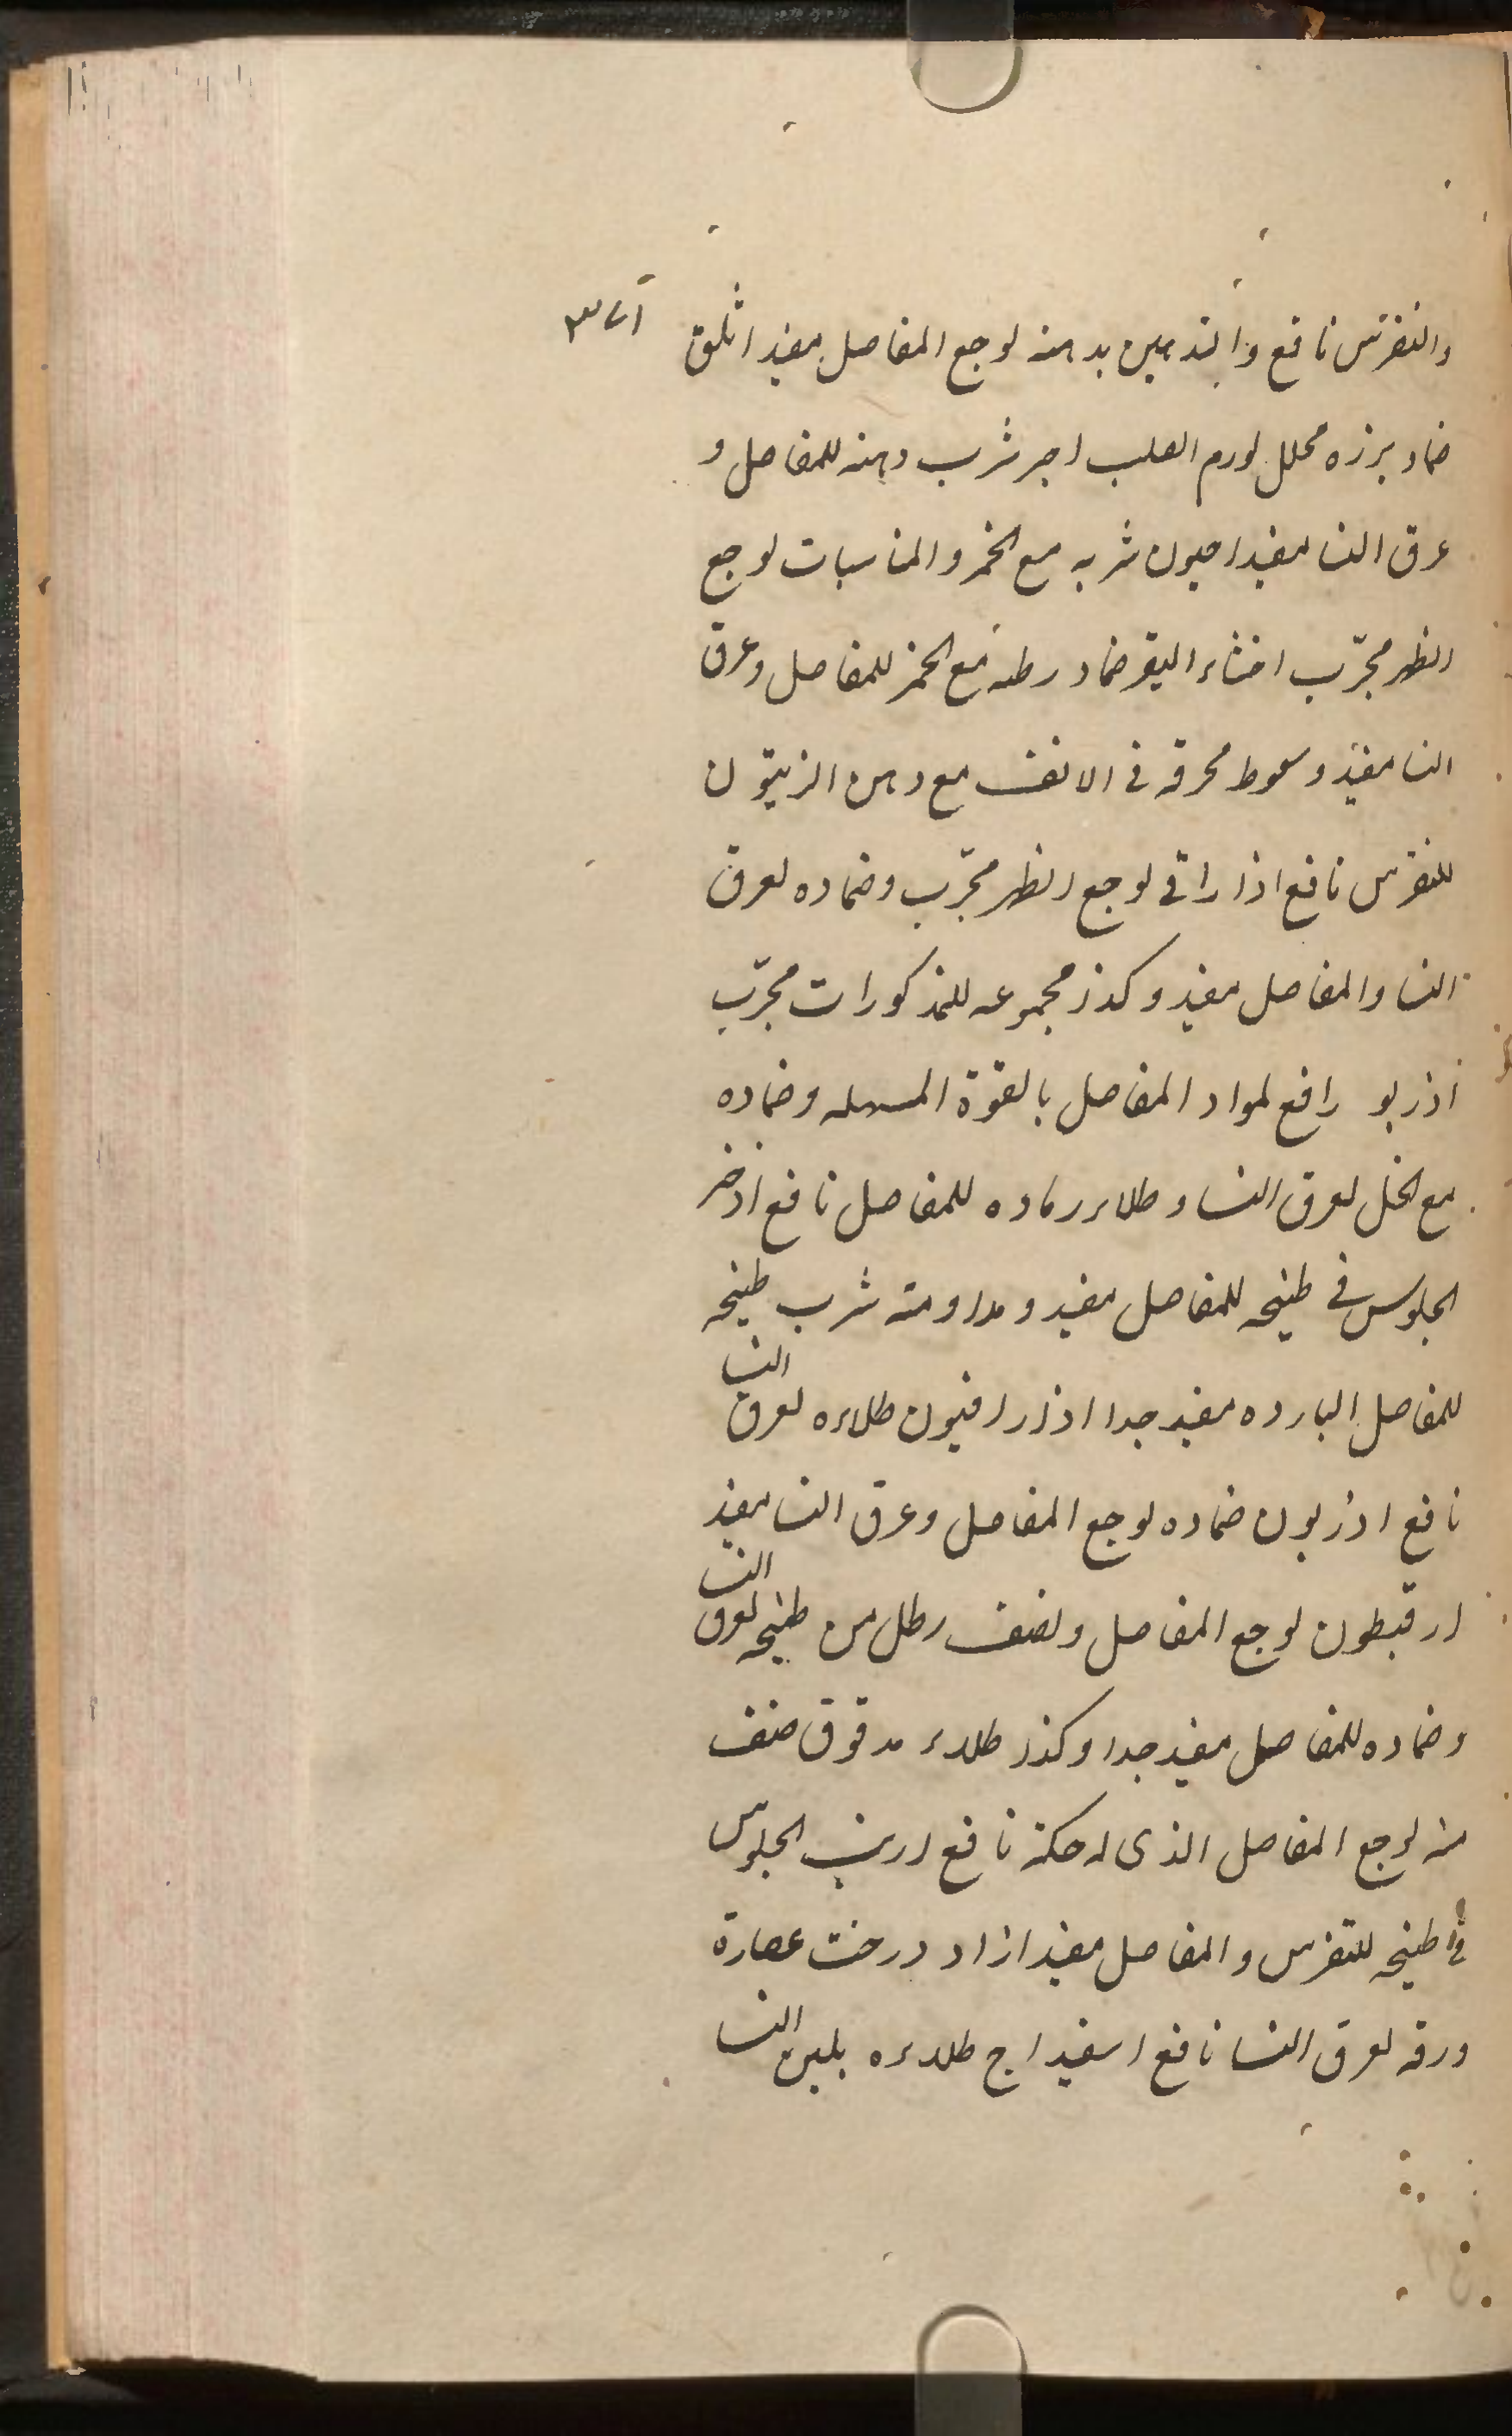 والنقرس نافع والتدهين بدهنه لوجع المفاصل مفيد اثلق
ضماد بزره محلل لورم الصلب اجر شرب دهنه للمفاصل و
عرق النسا مفيد احيون شربه مع الخمر والمناسبات لوجع
الظهر مجرّب اخثاء البقر ضماد رطبه مع الخمر للمفاصل وعرق
النسا مفيد وسعوط محرقه في الانف مع دهن الزيتون
للنقرس نافع اذاراقي لوجع الظهر مجرّب وضماده لعرق
النسا والمفاصل مفيد وكذا مجموعه للمذكورات مجرّب
اذربو رافع لمواد المفاصل بالقوة المسهله وضماده
مع الخل لعرق النسا وطلاء رماده للمفاصل نافع اذخر
الجلوس في طبيخه للمفاصل مفيد ومداومة شرب طبيخه
للمفاصل البارده مفيد جدا اذارافيون طلاءه لعرق النسا
نافع اذربون ضماده لوجع المفاصل وعرق النسا مفيد
ارقيطون لوجع المفاصل ونصف رطل من طبيخه لعرق النسا
وضماده للمفاصل مفيد جدا وكذا طلاء مدقوق صنف
منه لوجع المفاصل الذي له حكة نافع ارنب الجلوس
في طبيخه للنقرس والمفاصل مفيد ازاد درخت عصارة
ورقه لعرق النسا نافع اسفيداج طلاءه بلبن النسا